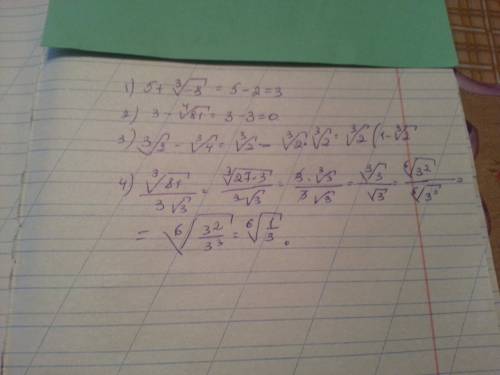 1) 5 + ∛-8 = 5 - 2 = 3
2) 3 - ∜81 = 3 - 3 = 0
3) ∛3 - ∛4 = ∛2 - ∛2 · ∛2 = ∛2 (1 - ∛2
4) ∛81 / 3√3 = ∛27·3 / 3√3 = 3 · ∛3 / 3√3 = ∛3 / √3 = ⁶√3² / ⁶√3³ =
= ⁶√3²/3³ = ⁶√1/3 .